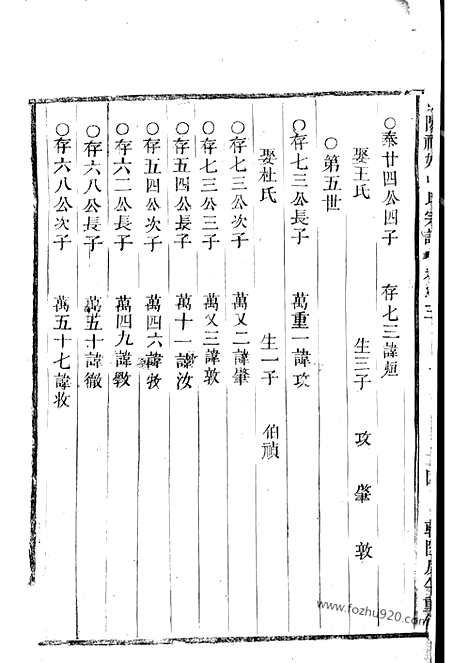 ○奉廿四公四子　存七三諱烜
娶王氏　生三子　攻　肇　敦
○第五世
○存七三公長子　萬重一諱攻
娶杜氏　生一子　伯禎
○存七三公次子　萬又二諱肇
○存七三公三子　萬又三諱敦
○存五四公長子　萬十一諱汝
○存五四公次子　萬四六諱牧
○存六二公長子　萬四九諱敎
○存六八公長子　萬五十諱徹
○存六八公次子　萬五十七諱收
www.fozhu920.com